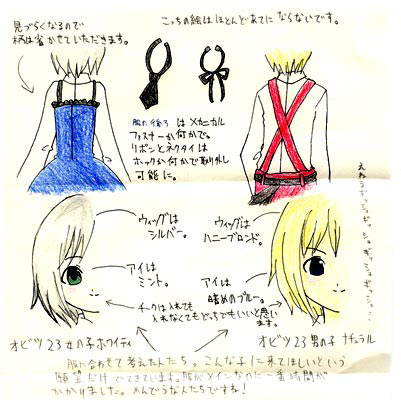 こっちの絵はほとんどあてに ならないです。
見づらくなるので
柄は省かせていただきます。
服の後ろ は メカニカル
ファスナーか何かで。
リボンとネクタイは
ホックか何かで取り外し
可能に。
ウィッグは
シルバー。
ウィッグは
ハニーブロンド。
アイは
ミント。
アイは
暗めのブルー。
チークは入れても
入れなくてもどっちでもいいと思い
ます。
オビツ23 女の子 ホワイティ
オビツ23 男の子 ナチュラル
服に合わせて考えた人たち。こんな子に来てほしいという
願望だけでできています。服がメインなのに一番時間が
かかりました。めんどうな人たちですね!